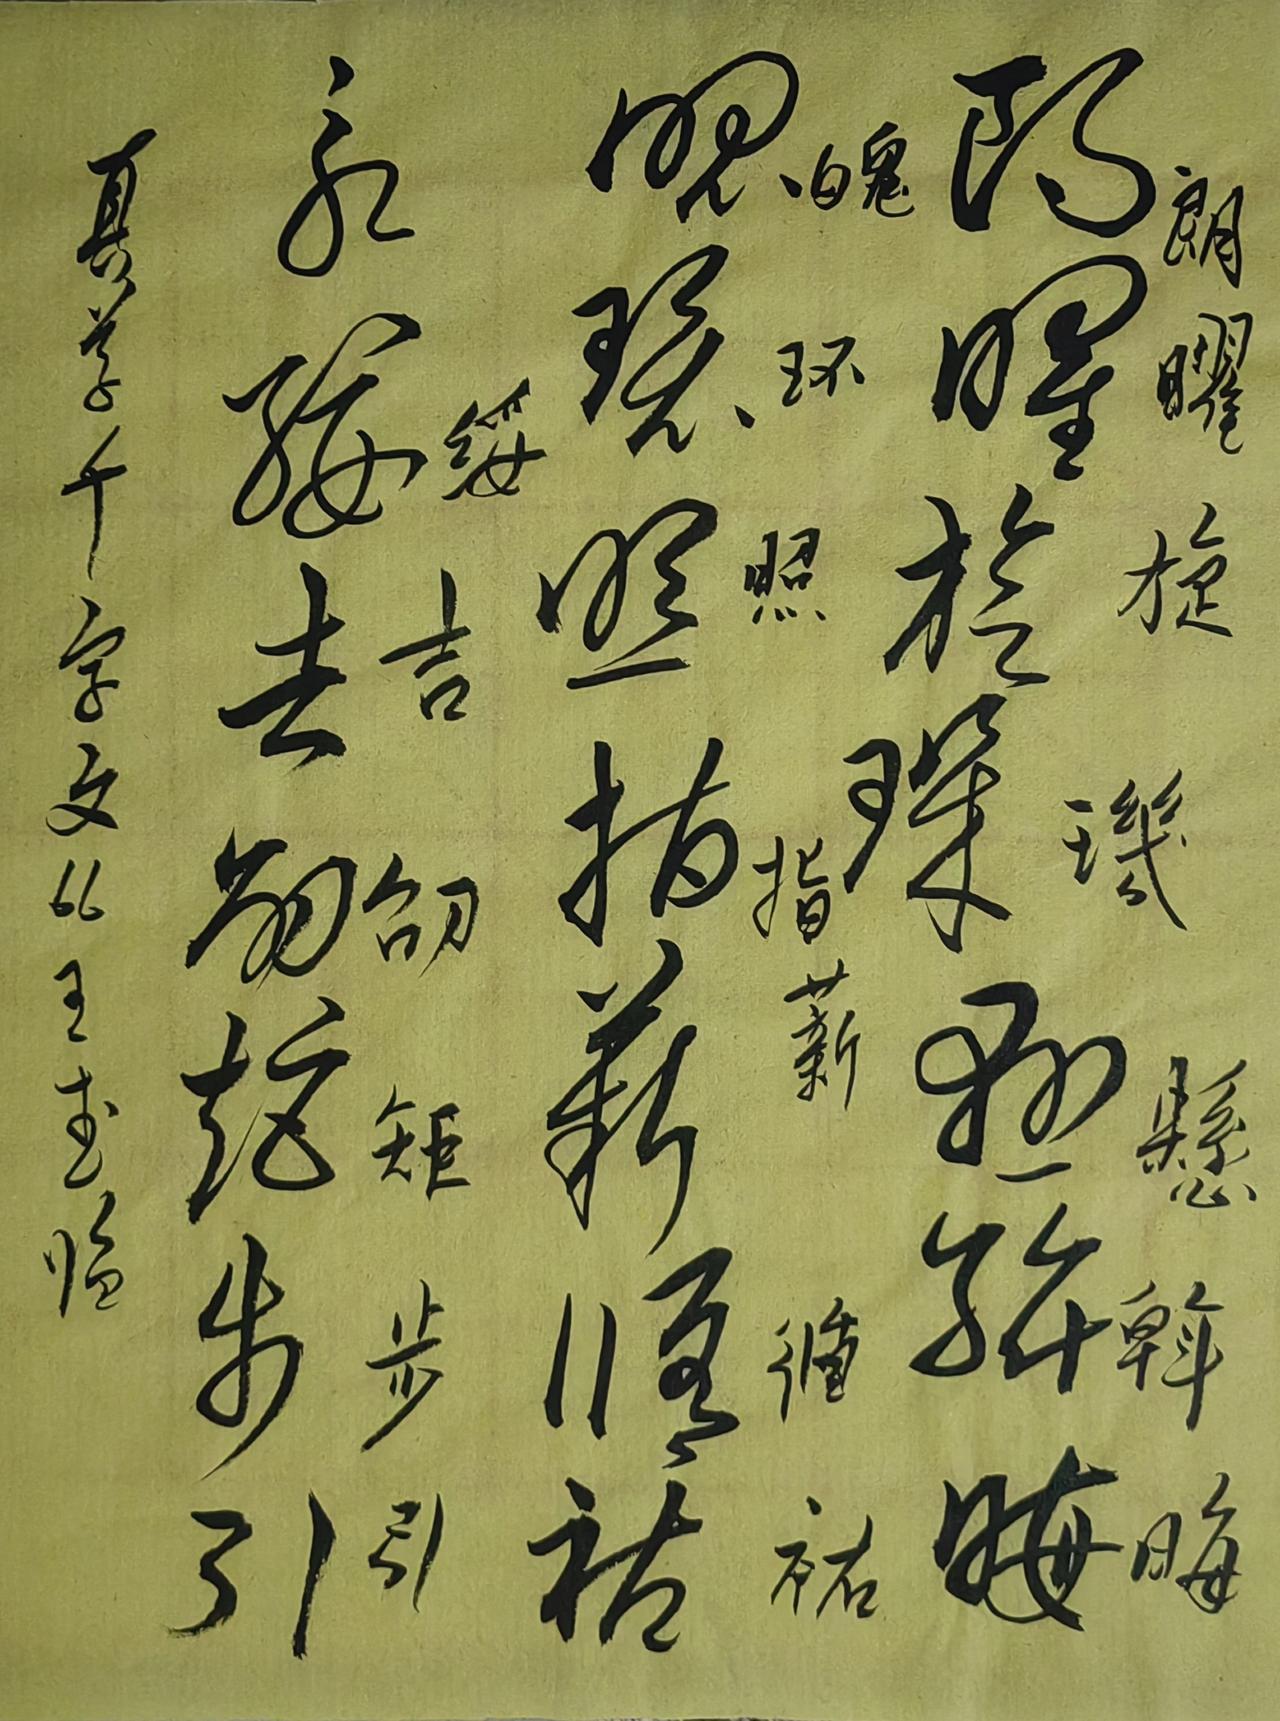 朗曜旋璣懸斡晦
朗曜旋璣懸斡晦
魄环照指薪循祐
魄環照指薪脩祐
綏吉劭矩步引
永綏吉劭矩步引
真草千字文66王武临